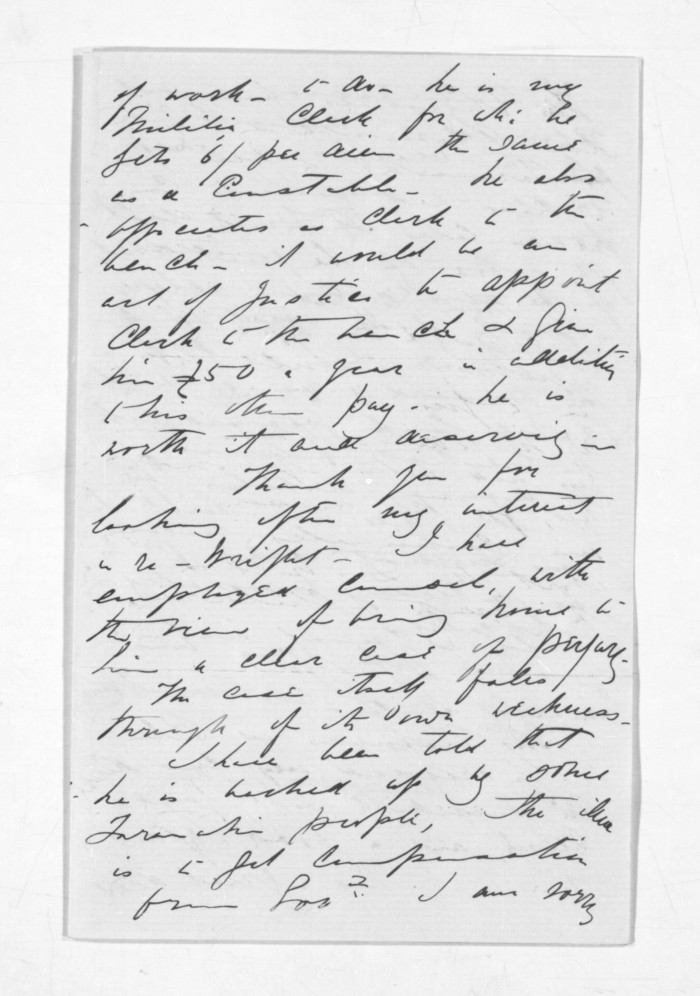 of work - to do - he is my
Militia Clerk for whi: he
gets 6/ per diem the same
as a Constable - he also
officiates as Clerk to the
bench - it would be an
act of Justice to appoint
Clerk to the bench & give
him £50 a year in addition
to his other pay - he is
worth it and deserving -
Thank you for
looking after my interest
in re - Wright - I have
employed Counsel, with
the view of bring home to
him a clear case of perjury -
The case itself falls
through of its own weakness -
I have been told that
he is backed up by some
Taranaki people, the idea
is to get Compensation
from Govt. I am sorry